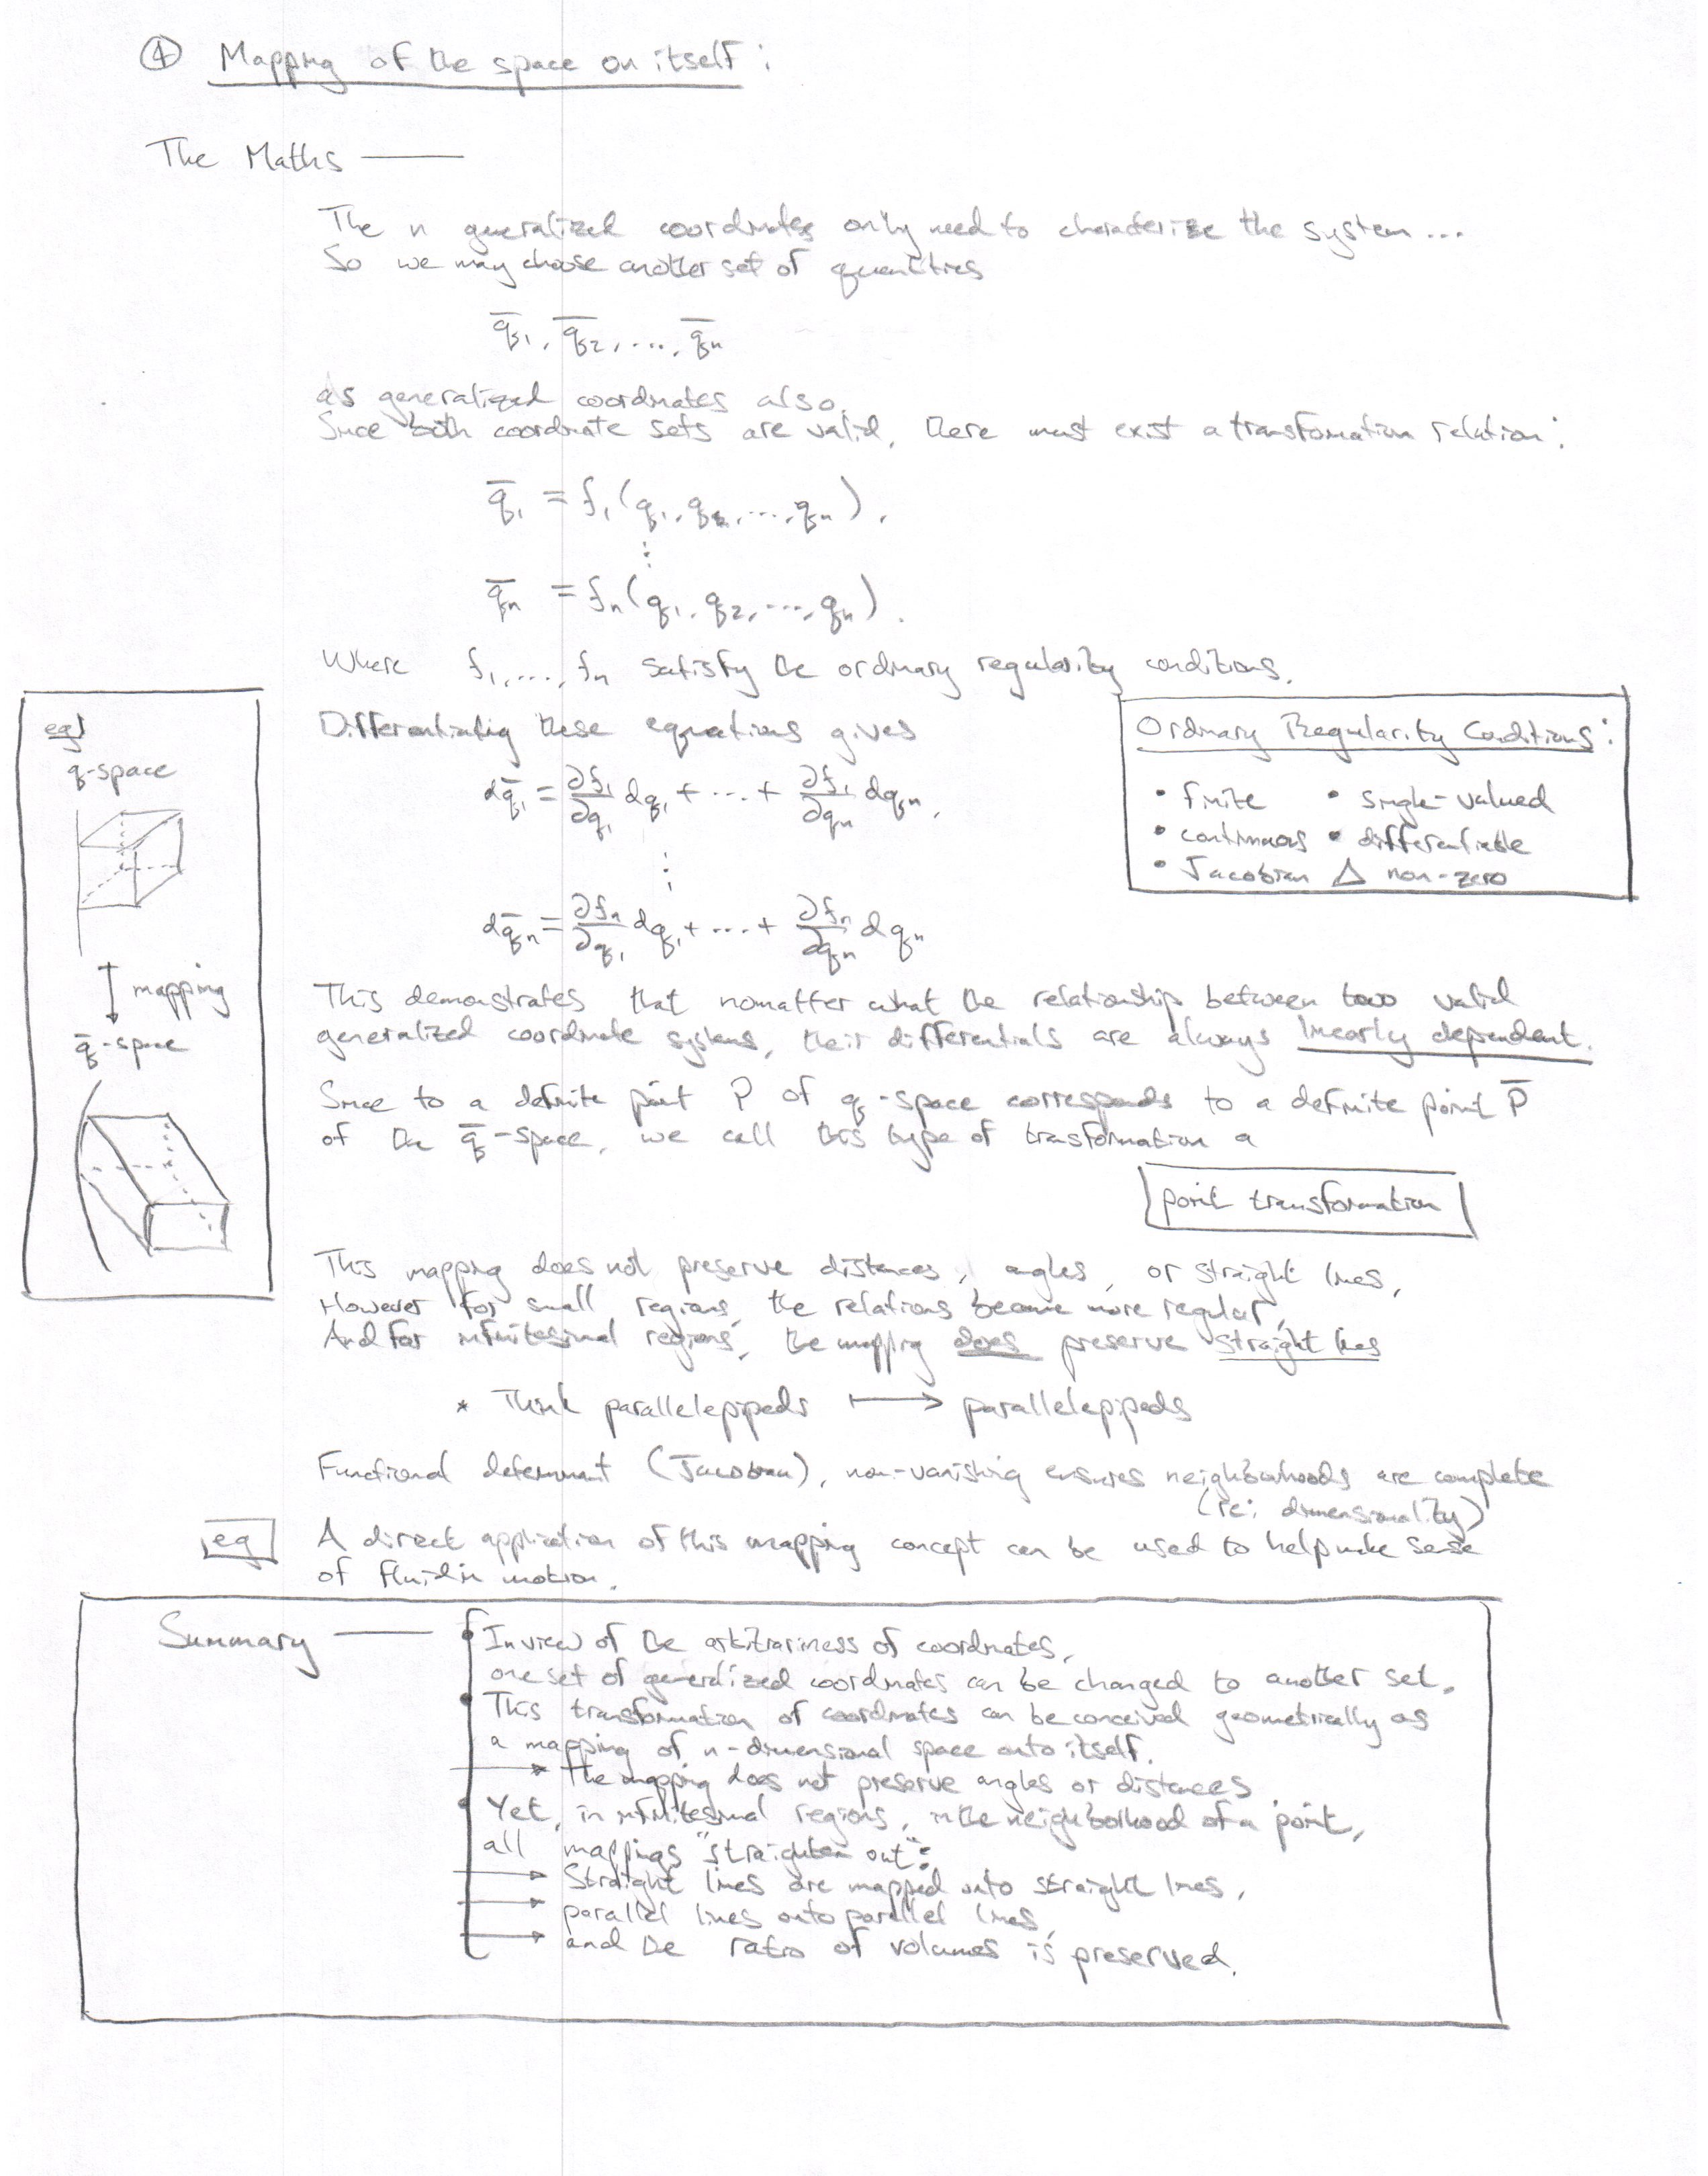 ④ Mapping of the space on itself:
The Maths —
The n generalized coordinates only need to characterize the system ...
So we may choose another set of quantities
q̅₁, q̅₂, ..., q̅ₙ
as generalized coordinates also.
Since both coordinate sets are valid, there must exist a transformation relation:
q̅₁ = f₁(q₁, q₂, ..., qₙ),
⋮
q̅ₙ = fₙ(q₁, q₂, ..., qₙ).
Where f₁, ..., fₙ satisfy the ordinary regularity conditions.
Differentiating these equations gives
dq̅₁ = ∂f₁/∂q₁ dq₁ + ... + ∂f₁/∂qₙ dqₙ,
⋮
dq̅ₙ = ∂fₙ/∂q₁ dq₁ + ... + ∂fₙ/∂qₙ dqₙ
Ordinary Regularity Conditions:
• finite • single-valued
• continuous • differentiable
• Jacobian Δ non-zero
eg)
q-space
mapping
q̅-space
This demonstrates that nomatter what the relationship between two valid
generalized coordinate systems, their differentials are always linearly dependent.
Since to a definite point P of q-space corresponds to a definite point P̅
of the q̅-space, we call this type of transformation a
point transformation
This mapping does not preserve distances, angles, or straight lines,
However for small regions, the relations become more regular,
And for infinitesimal regions, the mapping does preserve straight lines
* Think parallelepipeds ↦ parallelepipeds
Functional determinant (Jacobian), non-vanishing ensures neighbourhoods are complete
(re: dimensionality)
eg A direct application of this mapping concept can be used to help make sense
of fluid in motion.
Summary —
• In view of the arbitrariness of coordinates,
one set of generalized coordinates can be changed to another set.
• This transformation of coordinates can be conceived geometrically as
a mapping of n-dimensional space onto itself.
→ the mapping does not preserve angles or distances.
• Yet, in infinitesimal regions, in the neighborhood of a point,
all mappings "straighten out":
→ Straight lines are mapped onto straight lines,
→ parallel lines onto parallel lines,
→ and the ratio of volumes is preserved.